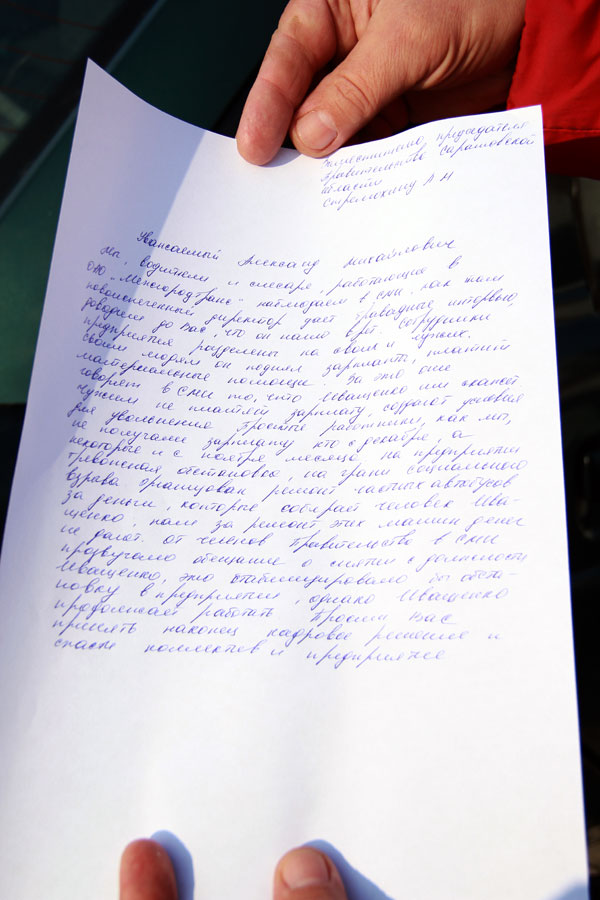 Заместителю председателя
правительства Саратовской
области
Стрелюхину А М
Уважаемый Александр Михайлович
Мы, водители и слесаря, работающие в
ОАО "Межгородтранс" наблюдаем в СМИ как наш
новоиспеченный директор дает бравадные интервью,
доводим до Вас, что он нагло врёт. Сотрудники
предприятия разделены на своих и чужих.
Своим людям он поднял зарплаты, платит
материальные помощи. За это они
говорят в СМИ то, что Иващенко им скажет.
Чужим не платят зарплату, создают условия
для увольнения простые работники, как мы,
не получаем зарплату кто с декабря, а
некоторые и с ноября месяца на предприятии
тревожная обстановка, на грани социального
взрыва организован ремонт частных автобусов
за деньги, которые собирает человек Ива-
щенко, нам за ремонт этих машин денег
не дают. От членов правительства в СМИ
прозвучало обещание о снятии с должности
Иващенко, это стабилизировало бы обста-
новку в предприятии, однако Иващенко
продолжает работать Просим Вас
принять наконец кадровое решение и
спасти коллектив и предприятие